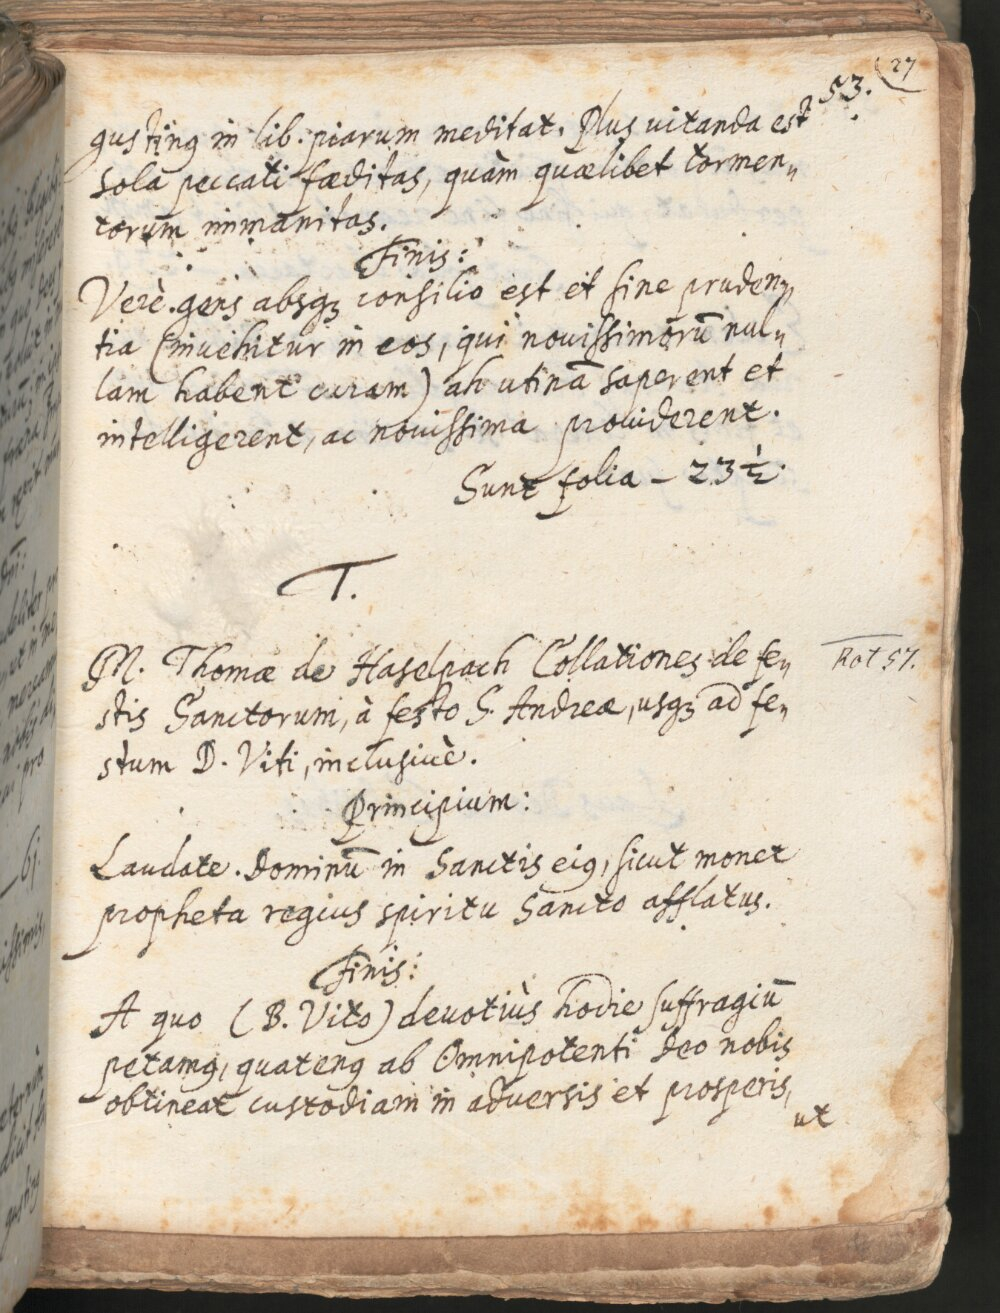 53. 27
gustinꝰ in lib. piarum meditat. Plus uitanda est
sola peccati fæditas, quàm quælibet tormen„
torum immanitas.
Finis:
Verè gens absqꝫ consilio est et sine pruden„
tia (inuehitur in eos, qui nouissimorū nul„
lam habent curam) ah utinā saperent et
intelligerent, ac nouissima prouiderent.
Sunt folia – 23½.
T.
M. Thomæ de Haselpach Collationes de fe„
Rot 57.
stis Sanctorum, à festo S. Andreæ, usqꝫ ad fe„
stum D. Viti, inclusiuè.
Principium:
Laudate Dominū in Sanctis eiꝰ, sicut monet
propheta regius spiritu Sancto afflatus.
Finis:
A quo (B. Vito) deuotiùs hodie suffragiū
petamꝰ, quatenꝰ ab Omnipotenti Deo nobis
obtineat custodiam in aduersis et prosperis,
ut